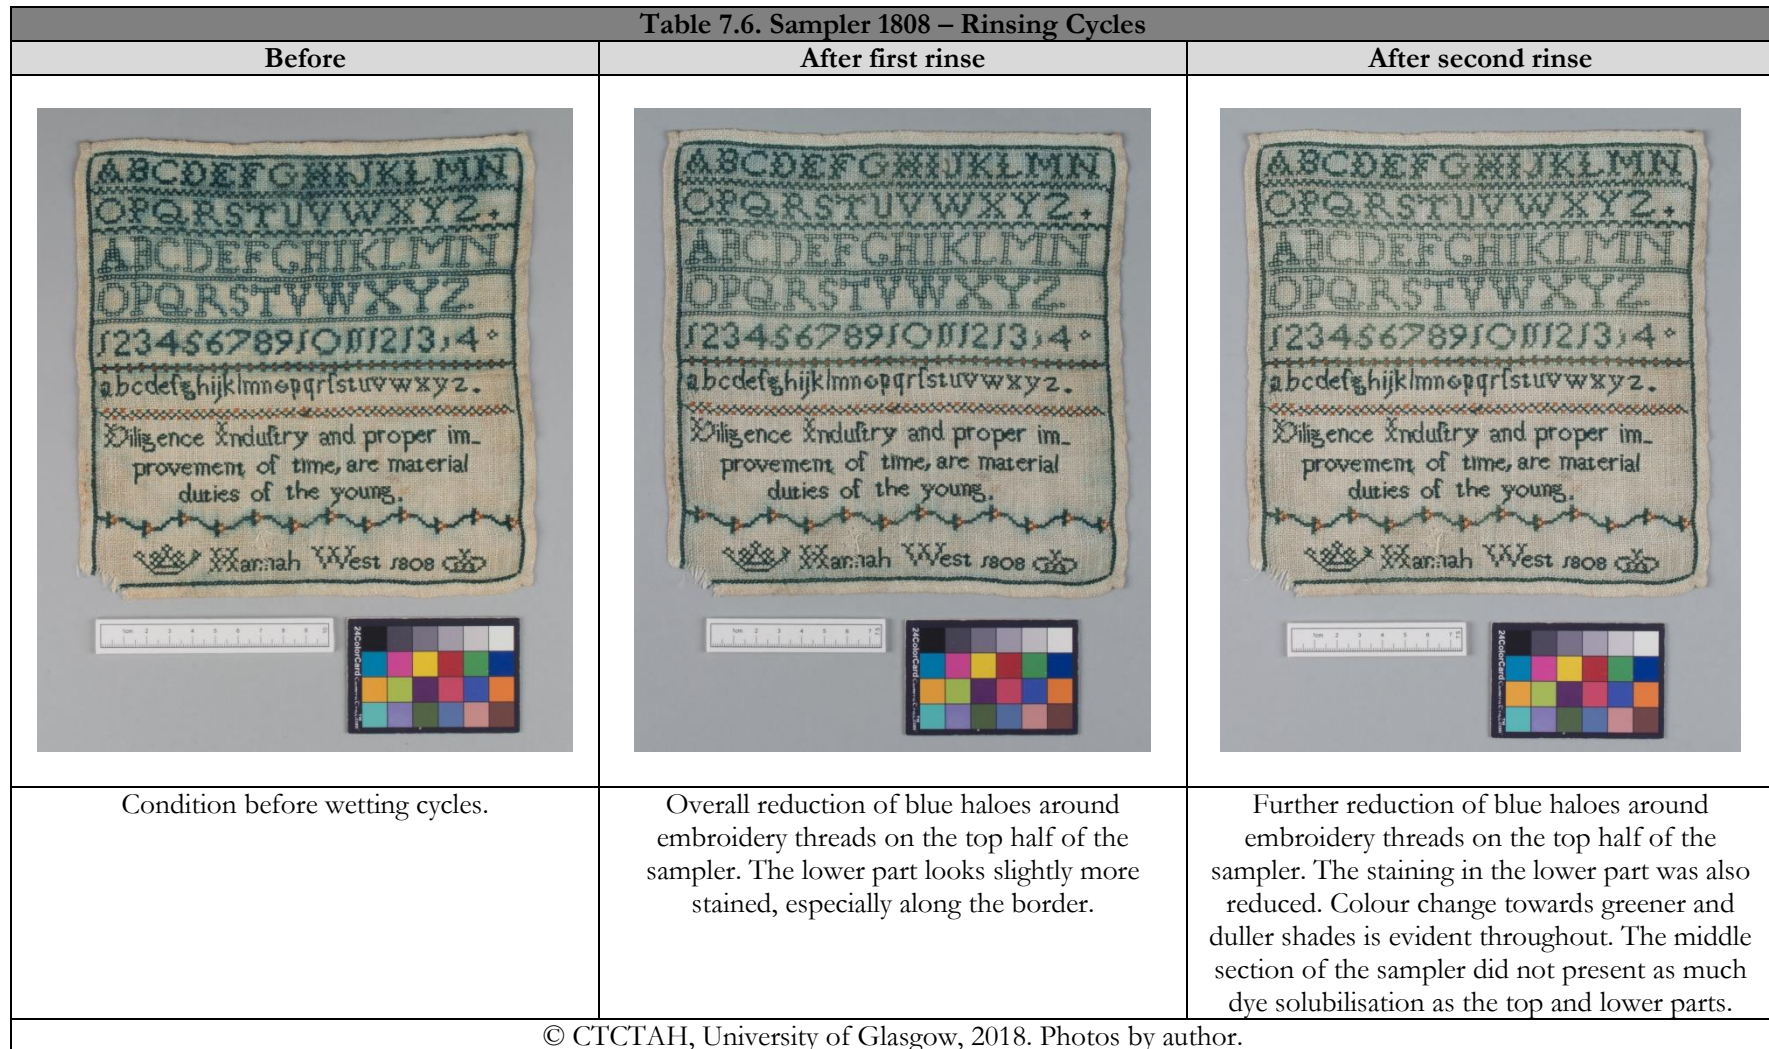 Table 7.6. Sampler 1808 – Rinsing Cycles
Before
After first rinse
After second rinse
ABCDEFGHIJKLMN
OPQRSTUVWXYZ.
ABCDEFGHIKLMN
OPQRSTVWXYZ.
1234567891011121314
abcdefghijklmnopqrſstuvwxyz.
Diligence Induſtry and proper im-
provement of time, are material
duties of the young.
Hannah West 1808
1cm 2 3 4 5 6 7 8 9
24ColorCard
ABCDEFGHIJKLMN
OPQRSTUVWXYZ.
ABCDEFGHIKLMN
OPQRSTVWXYZ.
1234567891011121314
abcdefghijklmnopqrſstuvwxyz.
Diligence Induſtry and proper im-
provement of time, are material
duties of the young.
Hannah West 1808
1cm 2 3 4 5 6 7
24ColorCard
ABCDEFGHIJKLMN
OPQRSTUVWXYZ.
ABCDEFGHIKLMN
OPQRSTVWXYZ.
1234567891011121314
abcdefghijklmnopqrſstuvwxyz.
Diligence Induſtry and proper im-
provement of time, are material
duties of the young.
Hannah West 1808
1cm 2 3 4 5 6 7
24ColorCard
Condition before wetting cycles.
Overall reduction of blue haloes around
embroidery threads on the top half of the
sampler. The lower part looks slightly more
stained, especially along the border.
Further reduction of blue haloes around
embroidery threads on the top half of the
sampler. The staining in the lower part was also
reduced. Colour change towards greener and
duller shades is evident throughout. The middle
section of the sampler did not present as much
dye solubilisation as the top and lower parts.
© CTCTAH, University of Glasgow, 2018. Photos by author.